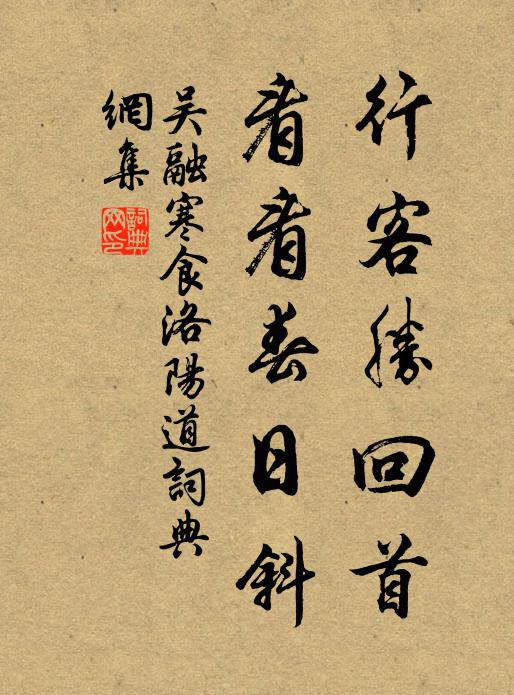 行客勝回首
看看春日斜
吴融寒食洛陽道詞典
網集
詞典
网印